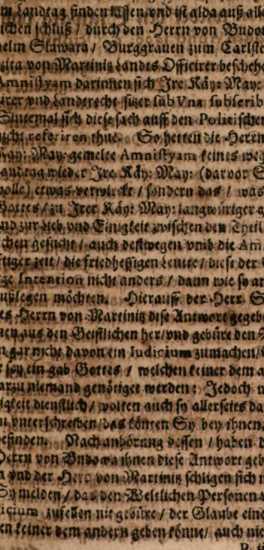 m Landtag finden lassen, vnd ist alda auß alle
chen schluß / durch den Herrn von Budo
helm Slawata / Burggrauen zum Carlste
sita von Martinitz Landes Officirer beschehe
Amnistyam darinnen sich Ire Käy: May:
vnd Landrecht sub Vna subscrib
sich diese sach auff den Politischen
nicht referiren thue. So hetten die Herrn
Käy: May: gemelte Amnistyam keines weg
Landtag wieder Ire Käy: May: (darvor G
wolle) etwas verwirckt / sondern das / was
Gottes / zu Irer Käy: May: langwiriger
vnd zur lieb vnd Einigkeit zwischen den Theil
chen gesucht / auch destwegen vmb die Am
tiger zeit / die friedhessigen Leute / diese der
ge Intention nicht anders / dann wie so
außlegen möchten. Hierauff der Herr S
Herrn von Martinitz diese Antwort gegeb
aus den Geistlichen her / vnd gebüre den
gar nicht davon ein Iudicium zumachen /
sey ein gab Gottes / welchen keiner dem a
darzu niemand genötiget werden: Jedoch
dienstlich / wolten auch so allerseits da
vnterschreiben / das könten Sy bey ihnen
befinden. Nach anhörung dessen / haben
Herrn von Budowa ihnen diese Antwort geb
vnd der Herr von Martinitz schligen sich
Sy melden / das den Weltlichen Personen
dicium zufellen nie gebüre / der Glaube eine
keiner dem andern geben könne / auch nie